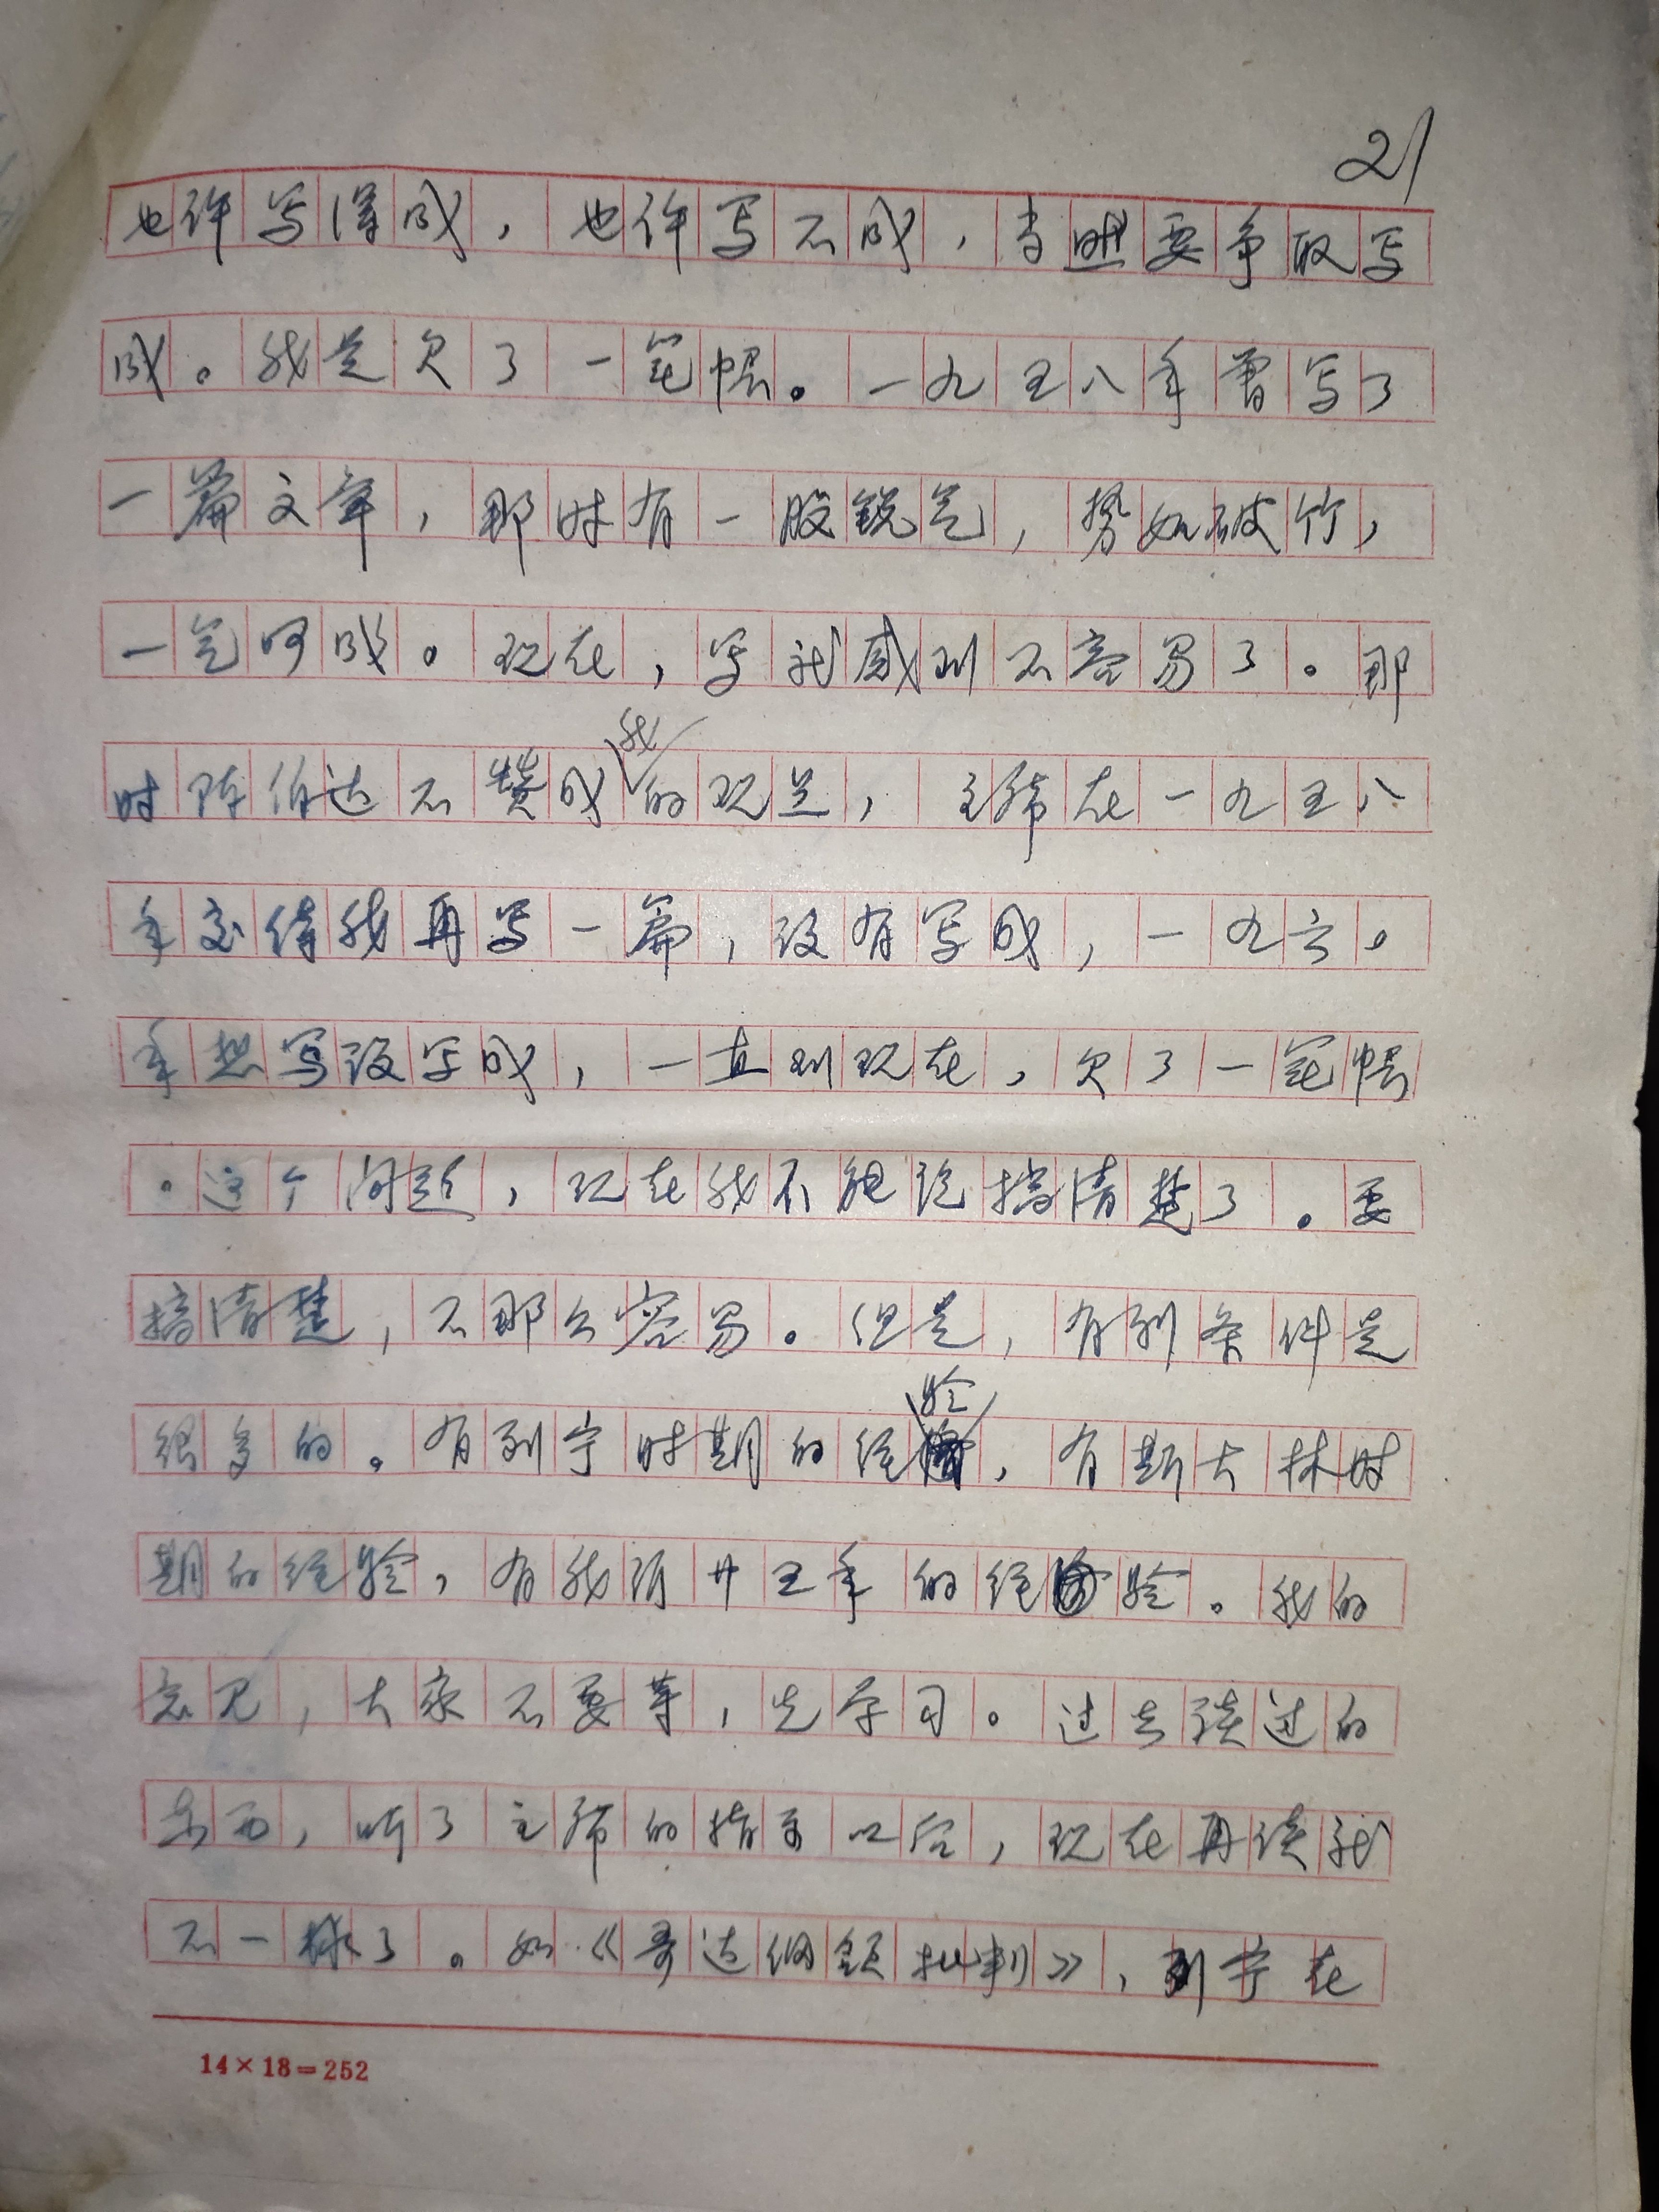 21
也许写得成，也许写不成，当然要争取写
成。我是欠了一笔帐。一九五八年曾写了
一篇文章，那时有一股锐气，势如破竹，
一气呵成。现在，写就感到不容易了。那
时陈伯达不赞成我的观点，主席在一九五八
年交待我再写一篇，没有写成，一九六〇
年想写没写成，一直到现在，欠了一笔帐
。这个问题，现在我不能说搞清楚了。要
搞清楚，不那么容易。但是，有利条件是
很多的。有列宁时期的经验，有斯大林时
期的经验，有我们廿五年的经验。我的
意见，大家不要等，先学习。过去读过的
东西，听了主席的指示以后，现在再读就
不一样了。如《哥达纲领批判》，列宁在
14×18=252